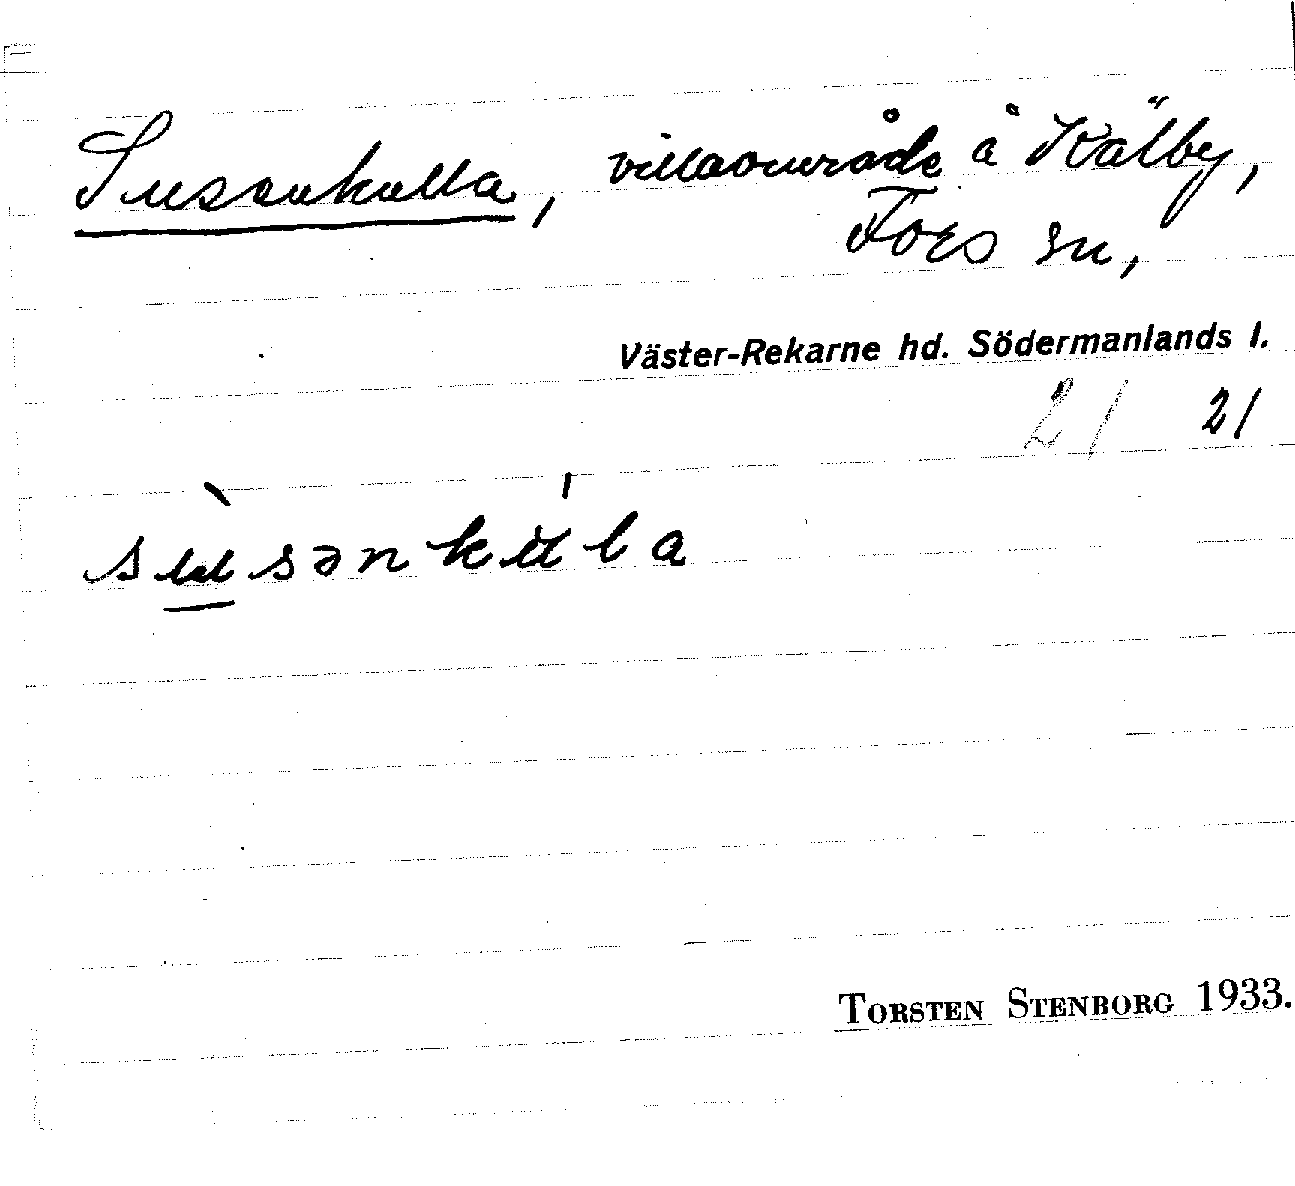 Sussenkulla, villaområde å Kälby,
Fors sn,
Väster-Rekarne hd. Södermanlands l.
21 21
TORSTEN STENBORG 1933.